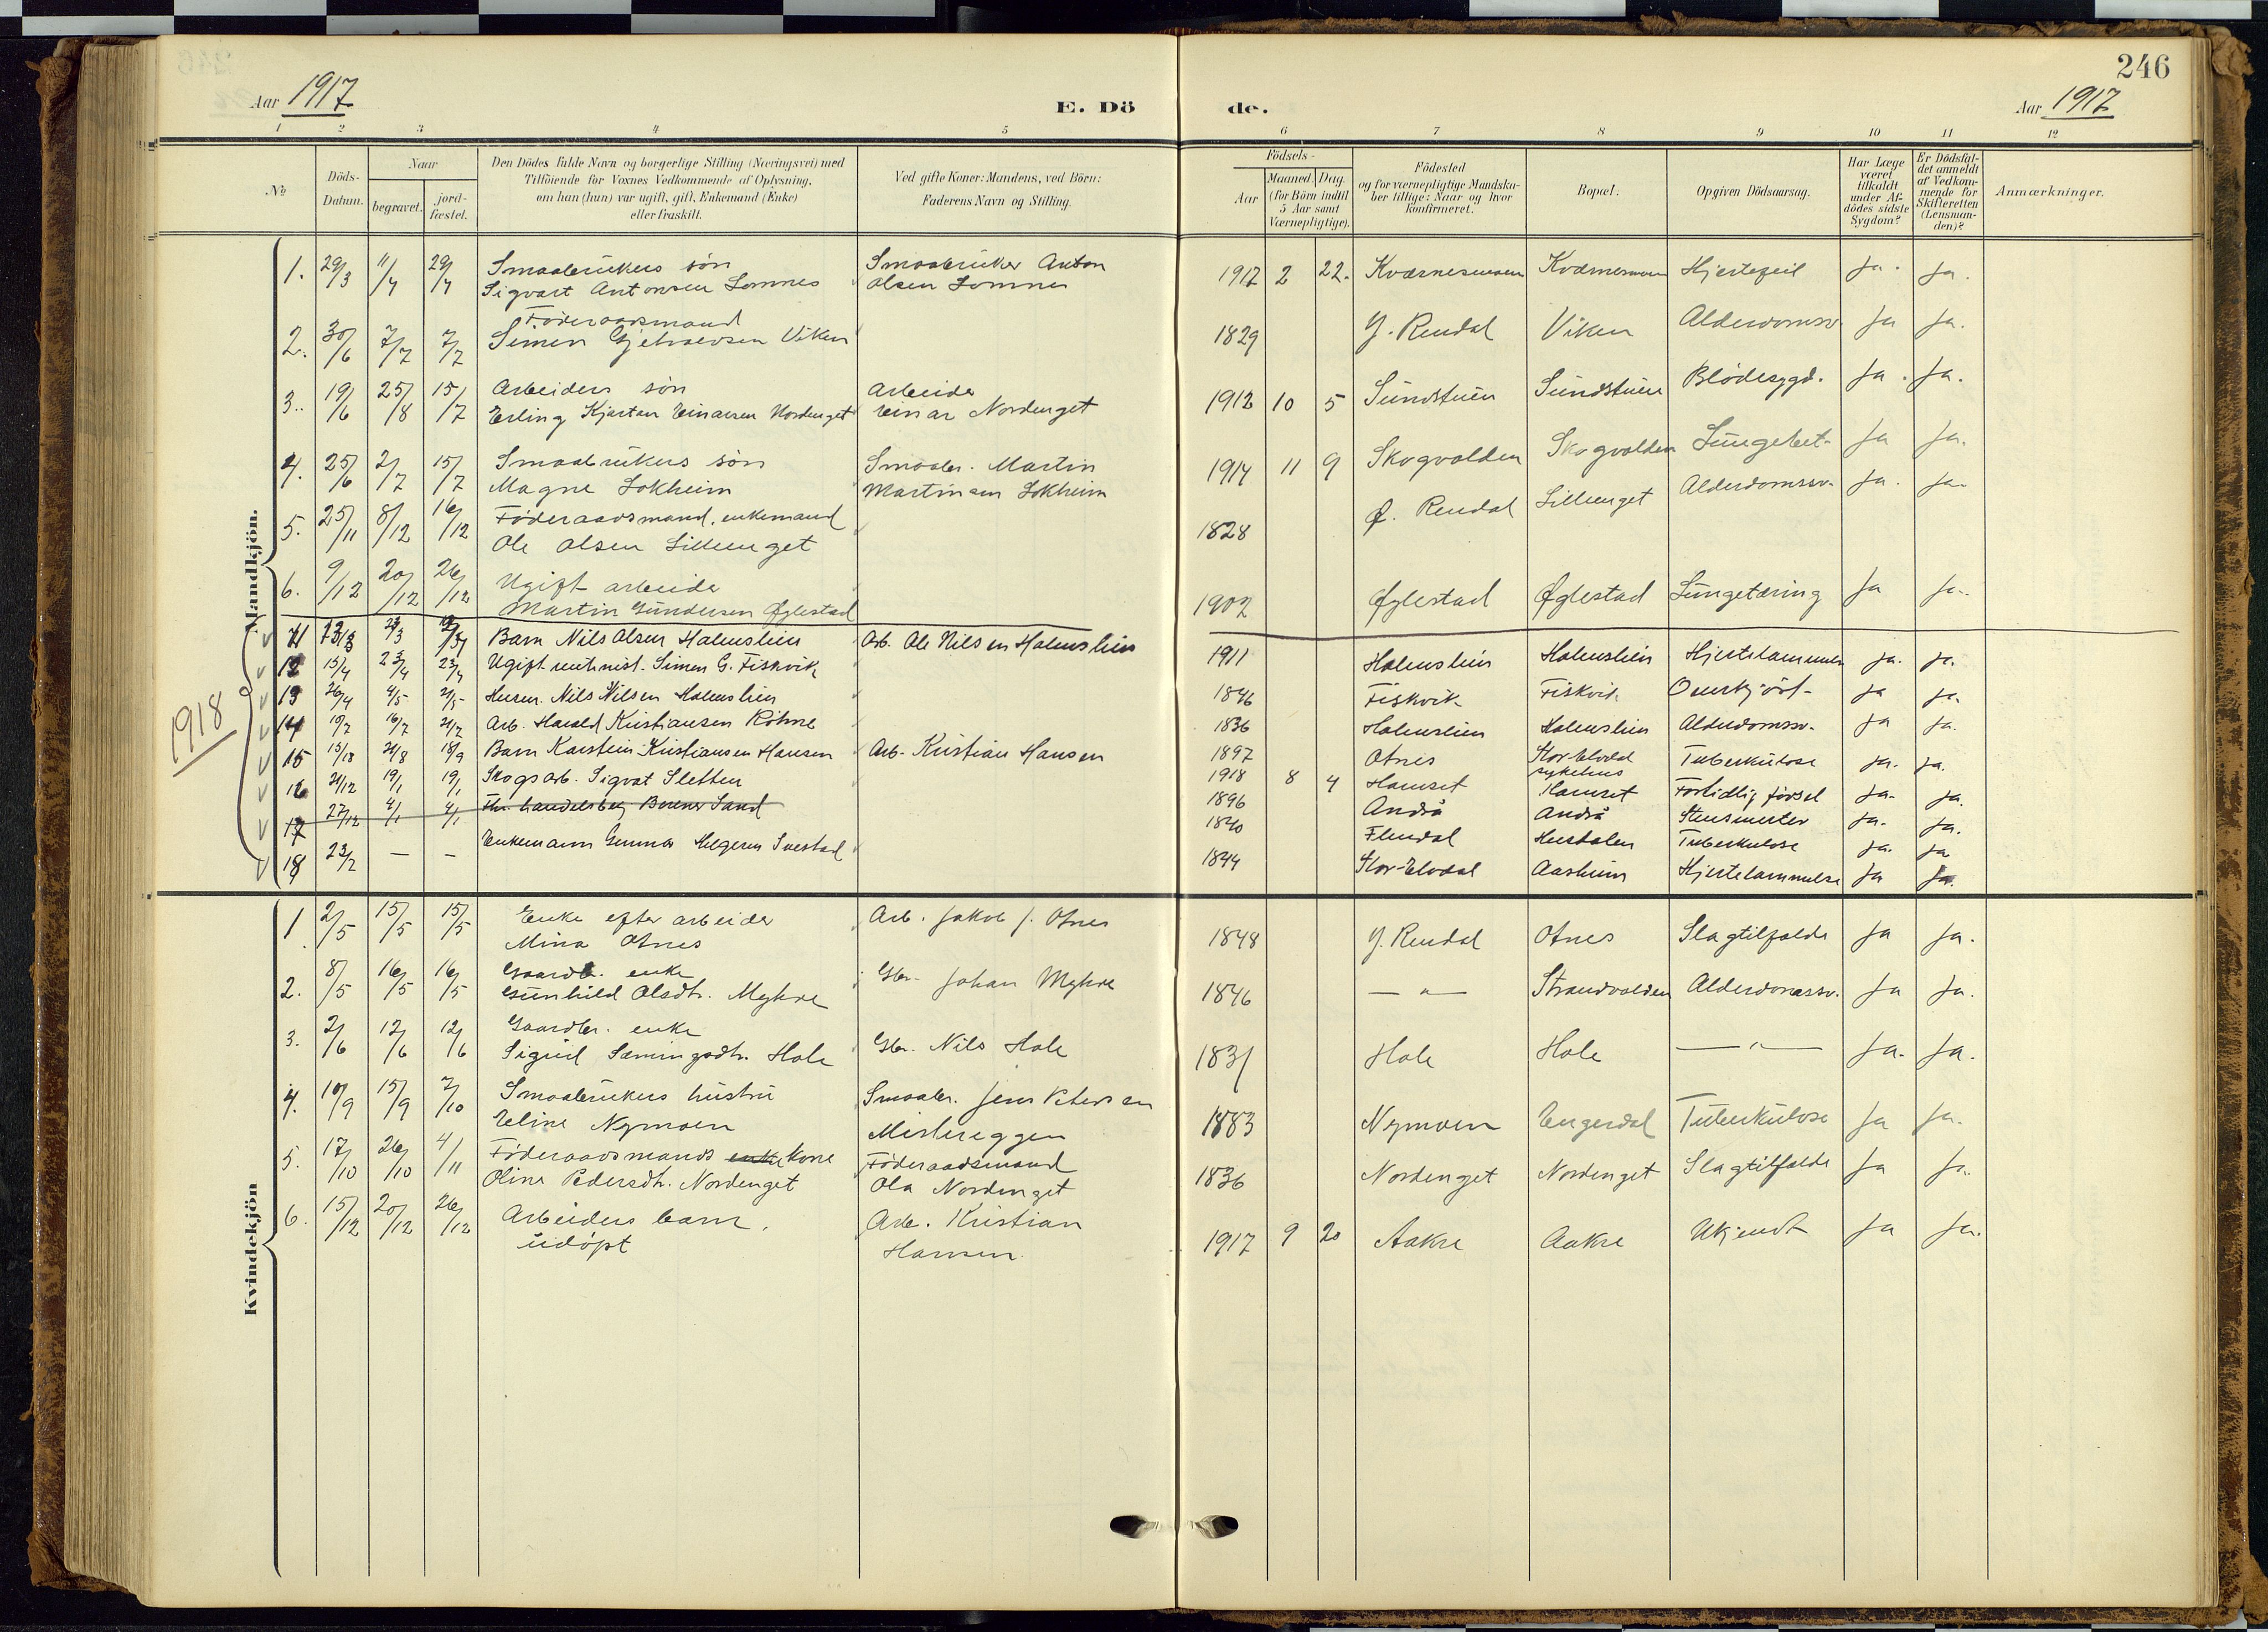 246
Aar 1917
E. Dö de.
Aar 1917
1 2 3 4 5 6 7 8 9 10 11 12
No
Döds-Datum.
Naar
begravet.
jord-fæstet.
Den Dödes fulde Navn og borgerlige Stilling (Næringsvei) med
Tilföiende for Voxnes Vedkommende af Oplysning,
om han (hun) var ugift, gift, Enkemand (Enke)
eller fraskilt.
Ved gifte Koner: Mandens, ved Börn:
Faderens Navn og Stilling.
Födsels-
Aar
Maaned. Dag.
(for Börn indtil
5 Aar samt
Værnepligtige).
Födested
og for værnepligtige Mandska-
ber tillige: Naar og hvor
konfirmeret.
Bopæl.
Opgiven Dödsaarsag.
Har Læge
været
tilkaldt
under Af-
dödes sidste
Sygdom?
Er Dödsfal-
det anmeldt
af Vedkom-
mende for
Skifteretten
(Lensman-
den)?
Anmærkninger.
Mandkjön.
1. 29/3 11/4 29/4 Smaabrukers sön Smaabruker Anton 1917 2 22. Kværnesmoen Kværnesmoen Hjertefeil Ja. Ja.
Sigvart Antonsen Lomnes Olsen Lomnes
Föderaadsmand
2. 30/6 7/7 7/7 Simen Viken 1829 Y. Rendal Viken Alderdomssv. Ja Ja.
3. 19/6 25/8 15/7 Arbeiders sön Arbeider 1912 10 5 Sundstuen Sundstuen Blödesygd. Ja. Ja.
Erling Kjartan Einarsen Nordenget Einar Nordenget
4. 25/6 2/7 15/7 Smaabrukers sön Smaabr. Martin 1914 11 9 Skogvolden Skogvolden Lungebet. Ja Ja.
Magne Lokheim Martinsen Lokheim
5. 25/11 8/12 16/12 Föderaadsmand, enkemand 1828 Ø. Rendal Lilleenget Alderdomssv. Ja. Ja.
Ole Olsen Lilleenget
6. 9/12 20/12 26/12 Ugift arbeider 1902 Øglestad Øglestad Lungetæring Ja Ja.
Martin Gundersen Øglestad
1918
11 Barn Nils Olsen Holmslien Arb. Ole Nilsen Holmslien 1911 Holmslien Holmslien Hjertelammelse ja. ja.
12 15/4 23/4 23/4 Ugift Simen G. Fiskvik 1846 Fiskvik Fiskvik ja ja.
13 26/4 4/5 Nils Nilsen Holmslien 1836 Holmslien Holmslien Alderdomssv. ja ja.
14 10/7 16/7 21/7 Arb. Harald Kristiansen 1897 Otnes Stor-Elvdal sykehus Tuberkulose ja. ja.
15 24/8 18/9 Barn Karstein Kristiansen Hansen Arb. Kristian Hansen 1918 8 4 Hamset Hamset Fortidlig födsel ja. ja.
16 21/12 19/1 19/1 Skogsarb. Sigvat Sletten 1896 Andrå Andrå ja. ja.
17 27/12 4/1 4/1 Sand 1840 Flendal Tuberkulose ja. ja
18 23/2 — — Enkemann Gunnar 1844 Stor-Elvdal Aasheim Hjertelammelse ja ja.
Kvindekjön
1 2/5 15/5 15/5 Enke efter arbeider Arb. Jakob J. Otnes 1848 Y. Rendal Otnes Slagtilfælde Ja Ja.
Mina Otnes
2. 8/5 16/5 16/5 Gaardbr. enke Gbr. Johan Mykre 1846 — " — Strandvolden Alderdomssv. Ja Ja.
Gunhild Olsdtr. Mykre
3. 2/6 12/6 12/6 Gaardbr. enke Gbr. Nils Hole 1831 Hole Hole — " — Ja. Ja.
Sigrid Sæmingsdtr. Hole
4. 10/9 15/9 7/10 Smaabrukers hustru Smaabr. Jens Petersen 1883 Nymoen Engerdal Tuberkulose Ja Ja.
Eline Nymoen Mistereggen
5. 17/10 26/10 4/11 Föderaadsmands enke kone Föderaadsmand 1836 Nordenget Nordenget Slagtilfælde Ja Ja.
Oline Pedersdtr. Nordenget Ola Nordenget
6. 15/12 20/12 26/12 Arbeiders barn, Arb. Kristian 1917 9 20 Aakre Aakre Ukjendt Ja Ja.
udöpt Hansen.